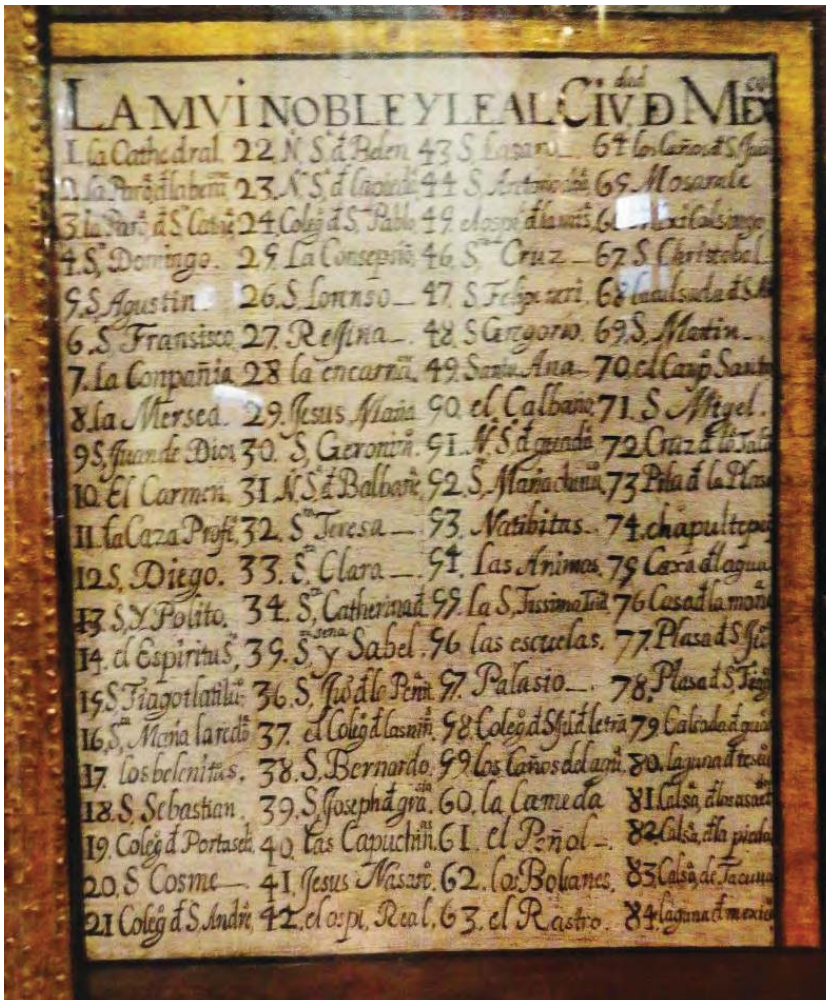 LA MVI NOBLE Y LEAL CIVdad Đ MEXco
1. la Cathedral
2. la Parôq
3. la Paro. đ Sta Catna
4. Sto Domingo.
5. S, Agustin
6. S Fransisco
7. La Conpañia
8. la Mersed.
9 S, Juan de Dios
10. El Carmen.
11. la Caza Profê
12 S, Diego.
13 S, Y Polito.
14. el Espiritu Sto,
15 S Tiagotlatilu
16, Sta Maria la redo
17 los belenitas.
18. S, Sebastian.
19. Coleg đ Portaseli
20, S Cosme
21 Coleg đ S, Andre,
22. N, Sa đ Belen
23. Na Sa đ la piedâ
24. Coleg đ S, Pablo
25 La Consepsiô
26. S, Lorenso
27. Reǰina
28 la encarnâ
29. Jesus Maria
30. S, Geronimô.
31. N, Sa đ Balbane,
32. Sta Teresa
33. Sta Clara
34. Sta Catherina đ sena
35. Sta Y Sabel.
36. S, Juo đ la Peniâ
37. el Coleg đ las niñs
38. S, Bernardo,
39. S, Joseph đ gra,
40. las Capuchinâ
41. Jesus Nasarô.
42. el ospi, Real,
43 S, Lasaro
44 S, Antonio abâ
45. el ospi
46. Sta Cruz
47. S Felipe neri.
48. S Gregorio.
49. Santa Ana
50. el Calbario
51. Na Sa đ guadâ
52. Sta Maria
53. Natibitas.
54. Las Animas.
55. La S, Tissima Trid
56 las escuelas.
57. Palasio
58. Coleg đ S Jd đ letrâ
59 los Caños del agû
60. la lameda
61. el Peñol
62. los Bobanes,
63. el Rastro.
64 los Caños đ S, Juan
65. Mosarale
66 Mexicalsingo
67 S Christobal
68 la calsada đ S
69. S, Matin
70. el Canpo Santo
71. S Migel.
72. Cruz đ los
73 Pila đ la Plasa
74. chapultepeq
75 Caxa đl agua
76 Casa đ la mone
77. Plasa đ S, Juo
78. Plasa đ S, Tiag
79 Calsada đ gua
80. laguna đ tescu
81 Calsa,
82 Calsa, đ la pieda
83 Calsa, de Tacuna
84. laguna đ mexico